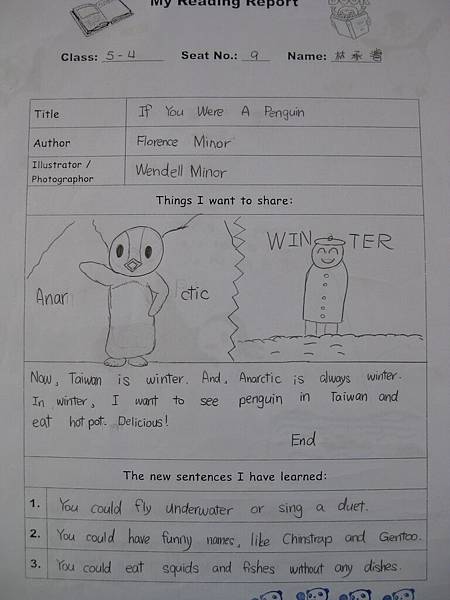 My Reading Report
Class: 5-4 Seat No.: 9 Name: 林承
Title If You Were A Penguin
Author Florence Minor
Illustrator / Photographor Wendell Minor
Things I want to share:
Anar ctic
WINTER
Now, Taiwan is winter. And, Anarctic is always winter.
In winter, I want to see penguin in Taiwan and
eat hot pot. Delicious!
End
The new sentences I have learned:
1. You could fly underwater or sing a duet.
2. You could have funny names, like Chinstrap and Gentoo.
3. You could eat squids and fishes without any dishes.